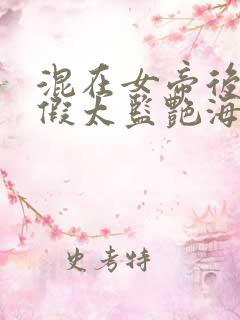 混在女帝後
假太監艷海
史考特